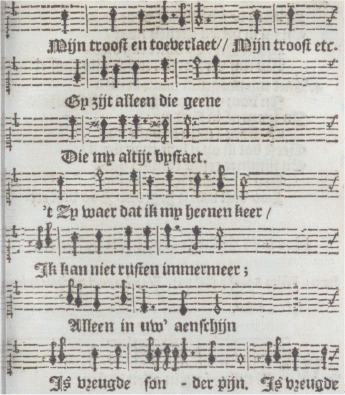 Mijn troost en toeverlaet// Mijn troost etc.
Gy zijt alleen die geene
Die my altijt bystaet.
't Zy waer dat ik my heenen keer /
Ik kan niet rusten immermeer ;
Alleen in uw' aenschijn
Is vreugde son - der pijn. Is vreugde